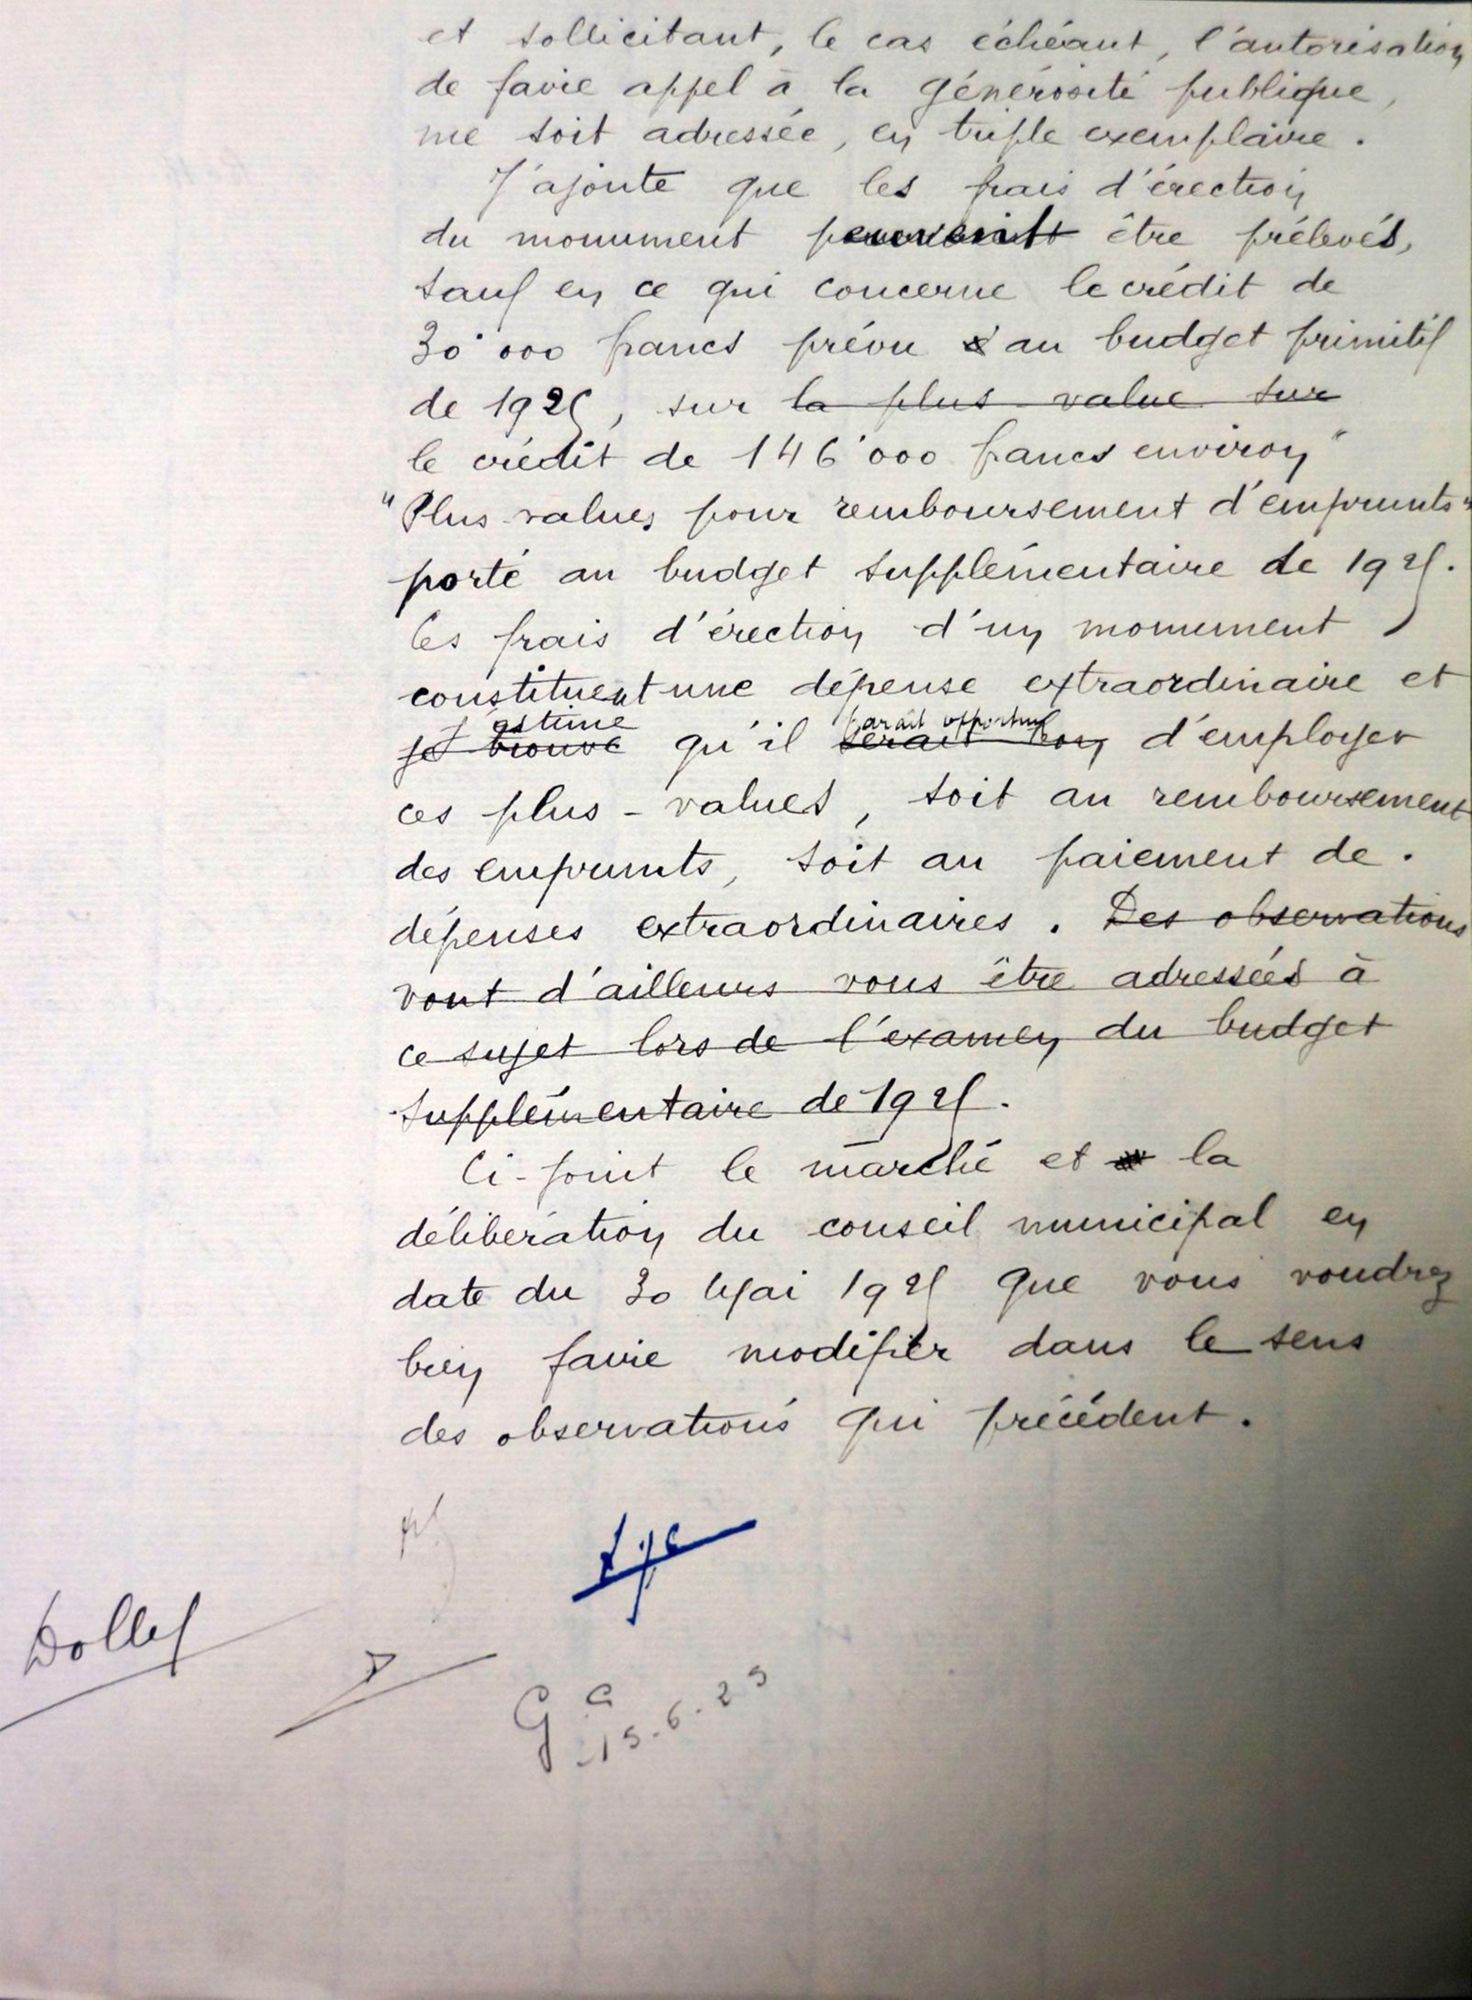 et sollicitant, le cas échéant, l'autorisation
de faire appel à la générosité publique,
me soit adressée, en triple exemplaire.
J'ajoute que les frais d'érection
du monument peuvent être prélevés,
sauf en ce qui concerne le crédit de
30'000 francs prévu au budget primitif
de 1925, sur la plus value sur
le crédit de 146'000 francs environ"
"Plus values pour remboursement d'emprunts"
porté au budget supplémentaire de 1925.
Ces frais d'érection d'un monument
constituent une dépense extraordinaire et
j'estime parait opportun
je trouve qu'il serait bon d'employer
ces plus-values, soit au remboursement
des emprunts, soit au paiement de.
dépenses extraordinaires. Des observations
vont d'ailleurs vous être adressées à
ce sujet lors de l'examen du budget
supplémentaire de 1925.
Ci-joint le marché et la
délibération du conseil municipal en
date du 30 Mai 1925 que vous voudrez
bien faire modifier dans le sens
des observations qui précèdent.
15.6.25